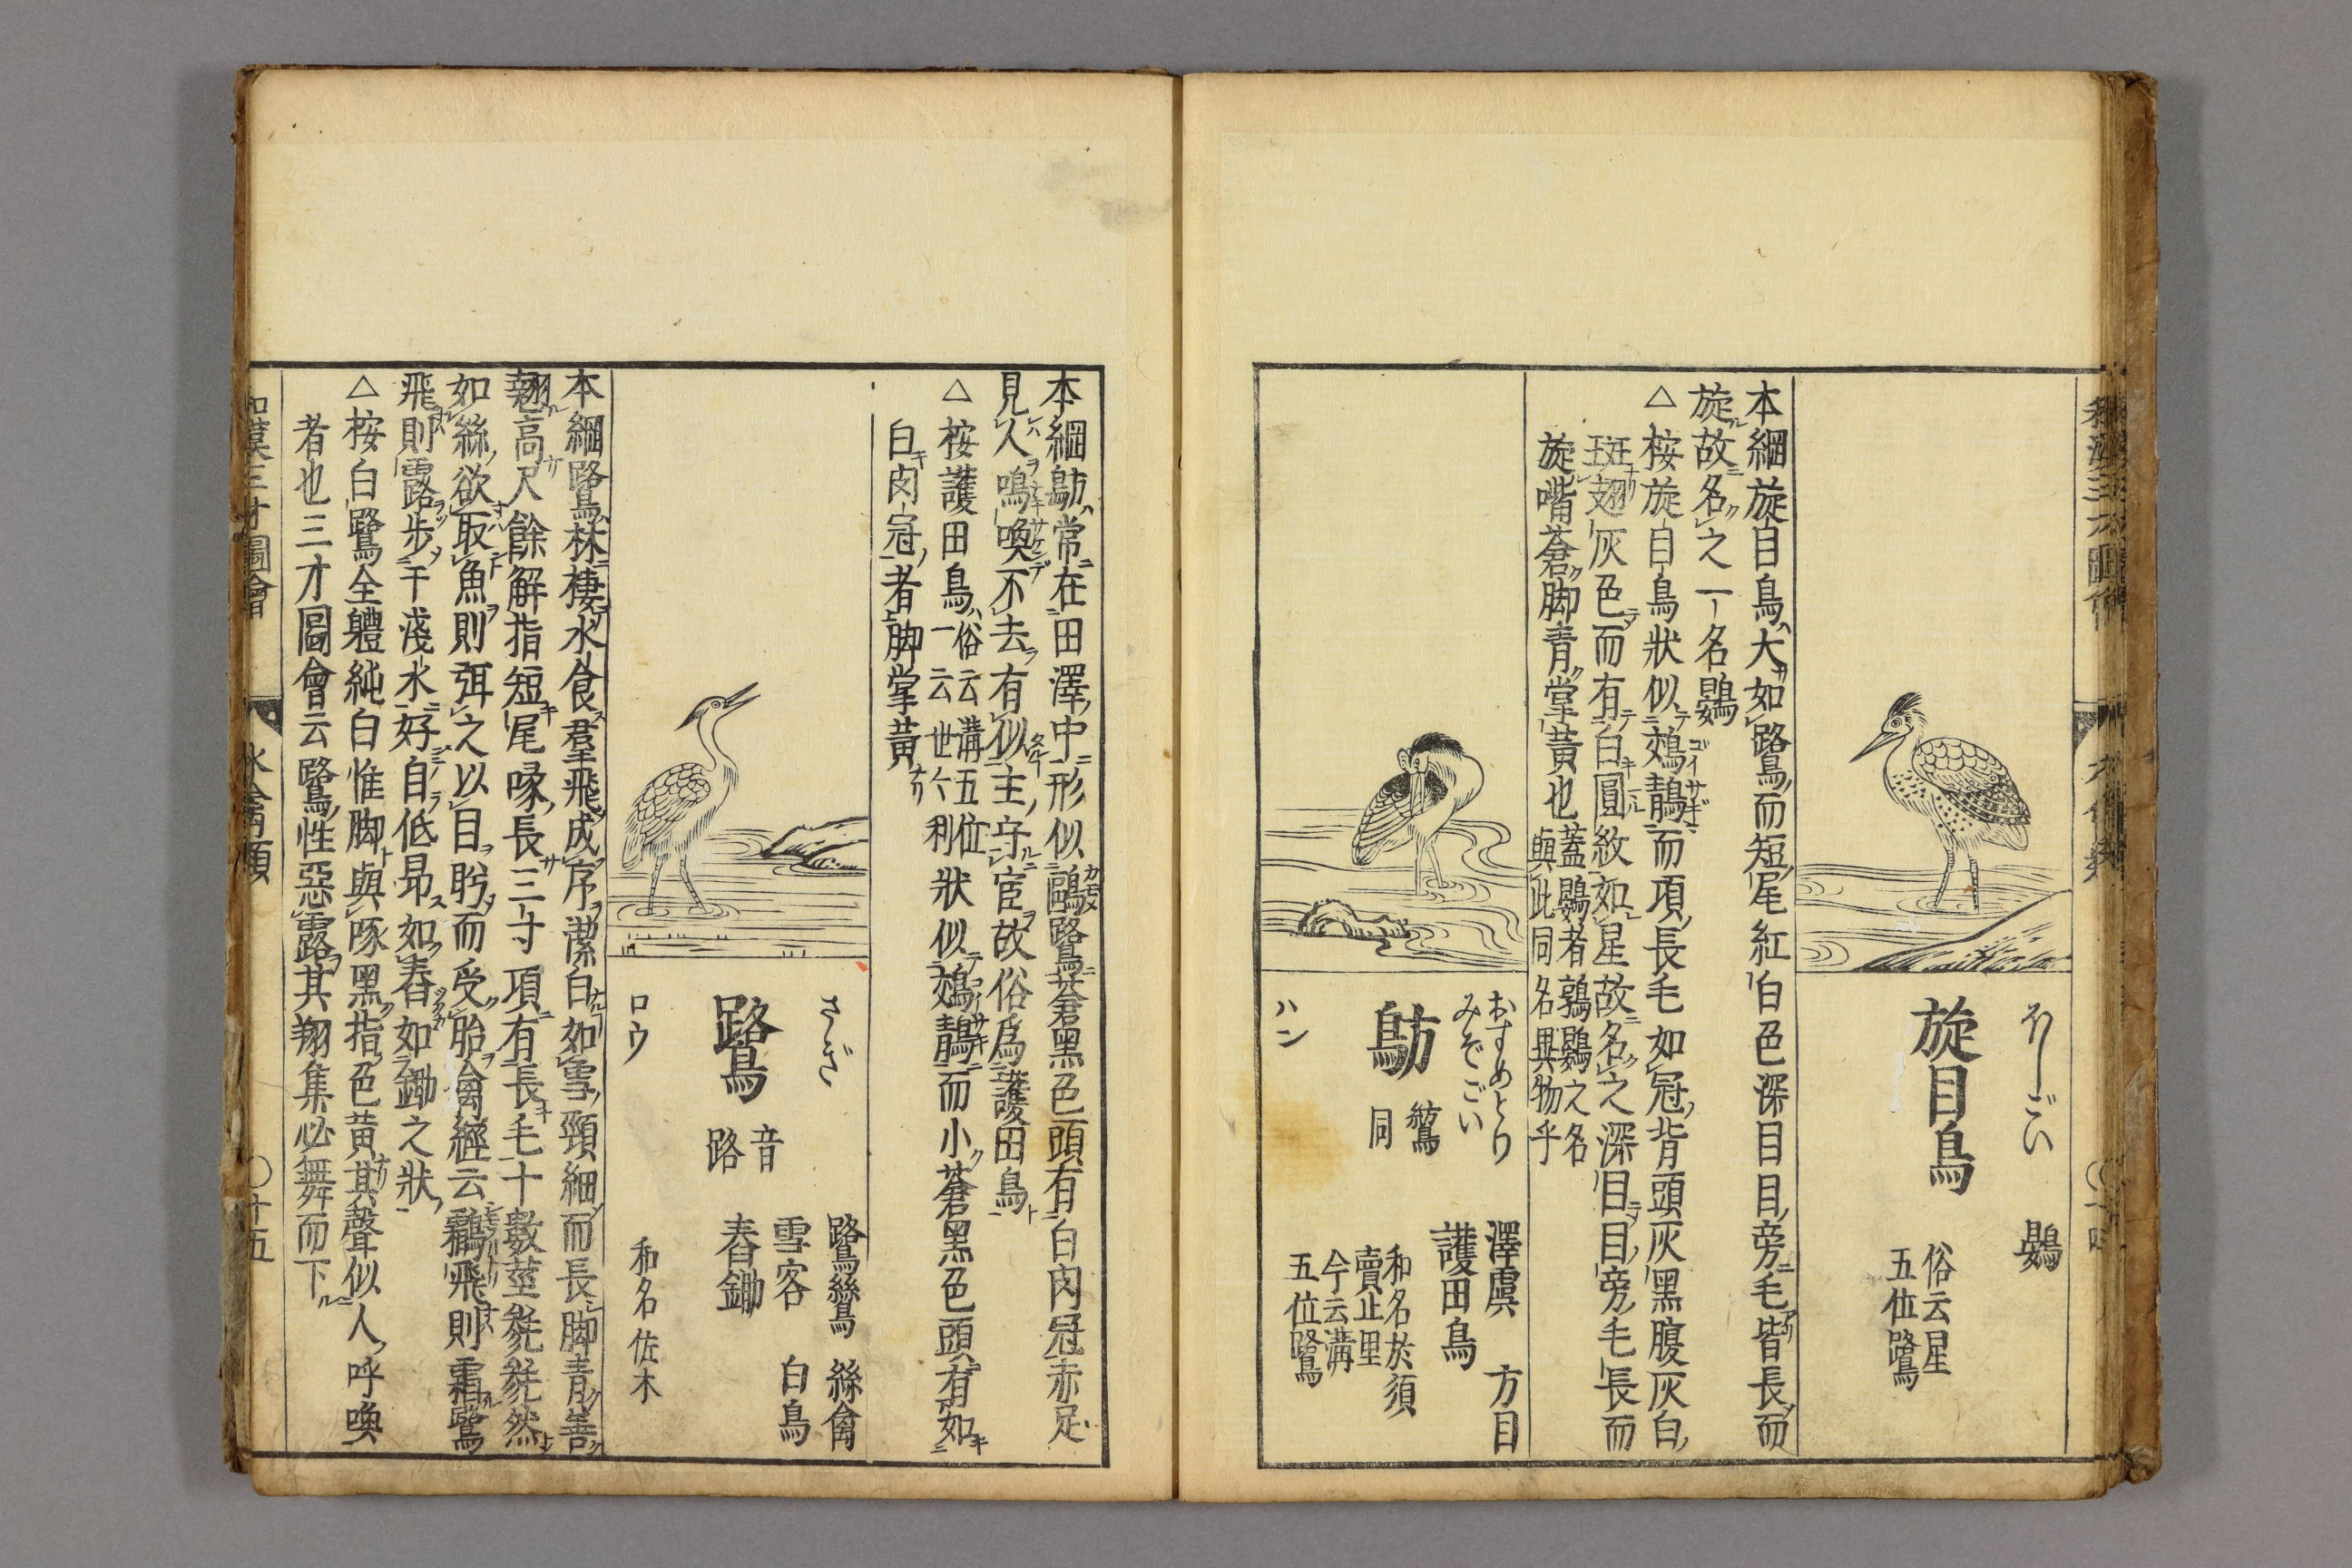 ほしごい
旋目鳥
鷃
俗云星
五位鷺
本綱旋目鳥大如鷺而短尾紅白色深目目旁毛皆長而
旋故名之一名鷃
△按旋目鳥狀似鵁鶄而項長毛如冠背頭灰黑腹灰白
斑翅灰色而有白圓紋如星故名之深目目旁毛長而
旋嘴蒼脚青掌黃也
蓋鷃者鶉鷃之名
與此同名異物乎
おすめとり
みぞごい
鴋
鶭
同
ハン
澤虞 方目
護田鳥
和名於須
賣止里
今云溝
五位鷺
本綱鴋常在田澤中形似鷗鷺蒼黑色頭有白肉冠赤足
見人鳴喚不去有似主守宦故俗爲護田鳥
△按護田鳥
俗云溝五位
一云世々利
狀似鵁鶄而小蒼黑色頭有如
白肉冠者脚掌黃
さぎ
鷺
音
路
ロウ
鷺鷥 絲禽
雪客 白鳥
舂鋤
和名佐木
本綱鷺林棲水食羣飛成序潔白如雪頸細而長脚青善
翹高尺餘解指短尾喙長三寸項有長毛十數莖毿毿然
如絲欲取魚則弭之以目盻而受胎禽經云鸛飛則霜鷺
飛則露步于淺水好自低昻如舂如鋤之狀
△按白鷺全體純白惟脚與啄黑指色黃其聲似人呼喚
者也三才圖會云鷺性惡露其翔集必舞而下
和漢三才圖會 水禽類 〇十五